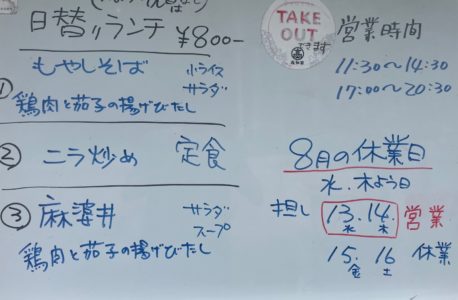 日替りランチ ¥800-
① もやしそば 小ライス サラダ
鶏肉と茄子の揚げびたし
② ニラ炒め 定食
③ 麻婆丼 サラダ スープ
鶏肉と茄子の揚げびたし
TAKE OUT できます
営業時間
11:30～14:30
17:00～20:30
8月の休業日
水.木よう日
担し 13.水 14.木 営業
15.金 16土 休業